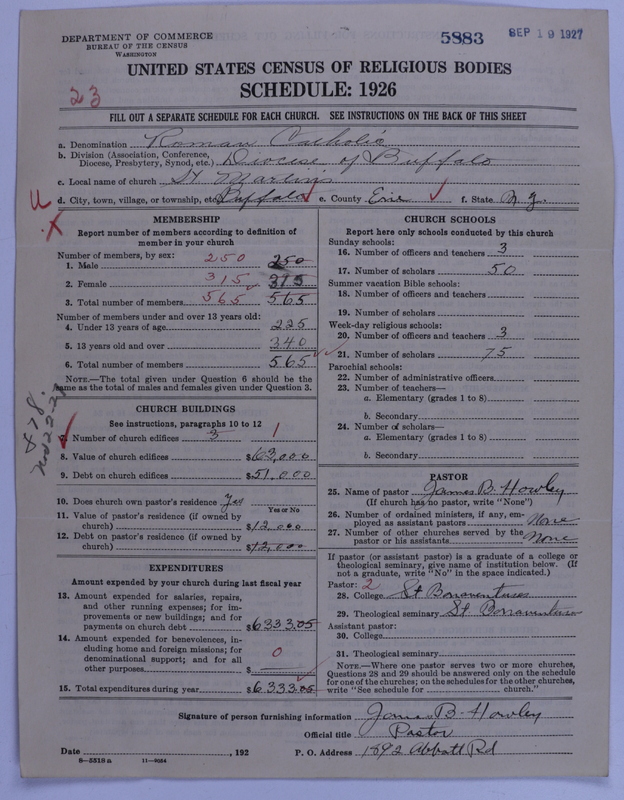 DEPARTMENT OF COMMERCE
BUREAU OF THE CENSUS
WASHINGTON
5883
SEP 19 1927
UNITED STATES CENSUS OF RELIGIOUS BODIES
SCHEDULE: 1926
23
FILL OUT A SEPARATE SCHEDULE FOR EACH CHURCH. SEE INSTRUCTIONS ON THE BACK OF THIS SHEET
a. Denomination Roman Catholic
b. Division (Association, Conference, Diocese, Presbytery, Synod, etc.) Diocese of Buffalo
c. Local name of church St Martins
U d. City, town, village, or township, etc. Buffalo e. County Erie f. State N.Y.
X
MEMBERSHIP
Report number of members according to definition of
member in your church
Number of members, by sex:
1. Male 250 250
2. Female 315 315
3. Total number of members 565 565
Number of members under and over 13 years old:
4. Under 13 years of age 225
5. 13 years old and over 340
6. Total number of members 565
NOTE.—The total given under Question 6 should be the
same as the total of males and females given under Question 3.
CHURCH BUILDINGS
See instructions, paragraphs 10 to 12
7. Number of church edifices 3 1
8. Value of church edifices $63,000
9. Debt on church edifices $51,000
10. Does church own pastor's residence Yes
Yes or No
11. Value of pastor's residence (if owned by
church) $12,000
12. Debt on pastor's residence (if owned by
church) $12,000
EXPENDITURES
Amount expended by your church during last fiscal year
13. Amount expended for salaries, repairs,
and other running expenses; for im-
provements or new buildings; and for
payments on church debt $6333.05
14. Amount expended for benevolences, in-
cluding home and foreign missions; for
denominational support; and for all
other purposes $ 0
15. Total expenditures during year $6333.05
CHURCH SCHOOLS
Report here only schools conducted by this church
Sunday schools:
16. Number of officers and teachers 3
17. Number of scholars 50
Summer vacation Bible schools:
18. Number of officers and teachers
19. Number of scholars
Week-day religious schools:
20. Number of officers and teachers 3
21. Number of scholars 75
Parochial schools:
22. Number of administrative officers
23. Number of teachers—
a. Elementary (grades 1 to 8)
b. Secondary
24. Number of scholars—
a. Elementary (grades 1 to 8)
b. Secondary
PASTOR
25. Name of pastor James B. Howley
(If church has no pastor, write "None")
26. Number of ordained ministers, if any, em-
ployed as assistant pastors None
27. Number of other churches served by the
pastor or his assistants None
If pastor (or assistant pastor) is a graduate of a college or
theological seminary, give name of institution below. (If
not a graduate, write "No" in the space indicated.)
Pastor: 2
28. College St Bonaventures
29. Theological seminary St. Bonaventure
Assistant pastor:
30. College
31. Theological seminary
NOTE.—Where one pastor serves two or more churches,
Questions 28 and 29 should be answered only on the schedule
for one of the churches; on the schedules for the other churches,
write "See schedule for church."
Signature of person furnishing information James B. Howley
Official title Pastor
Date , 192 P. O. Address 1892 Abbott Rd
8—5518a 11—8054